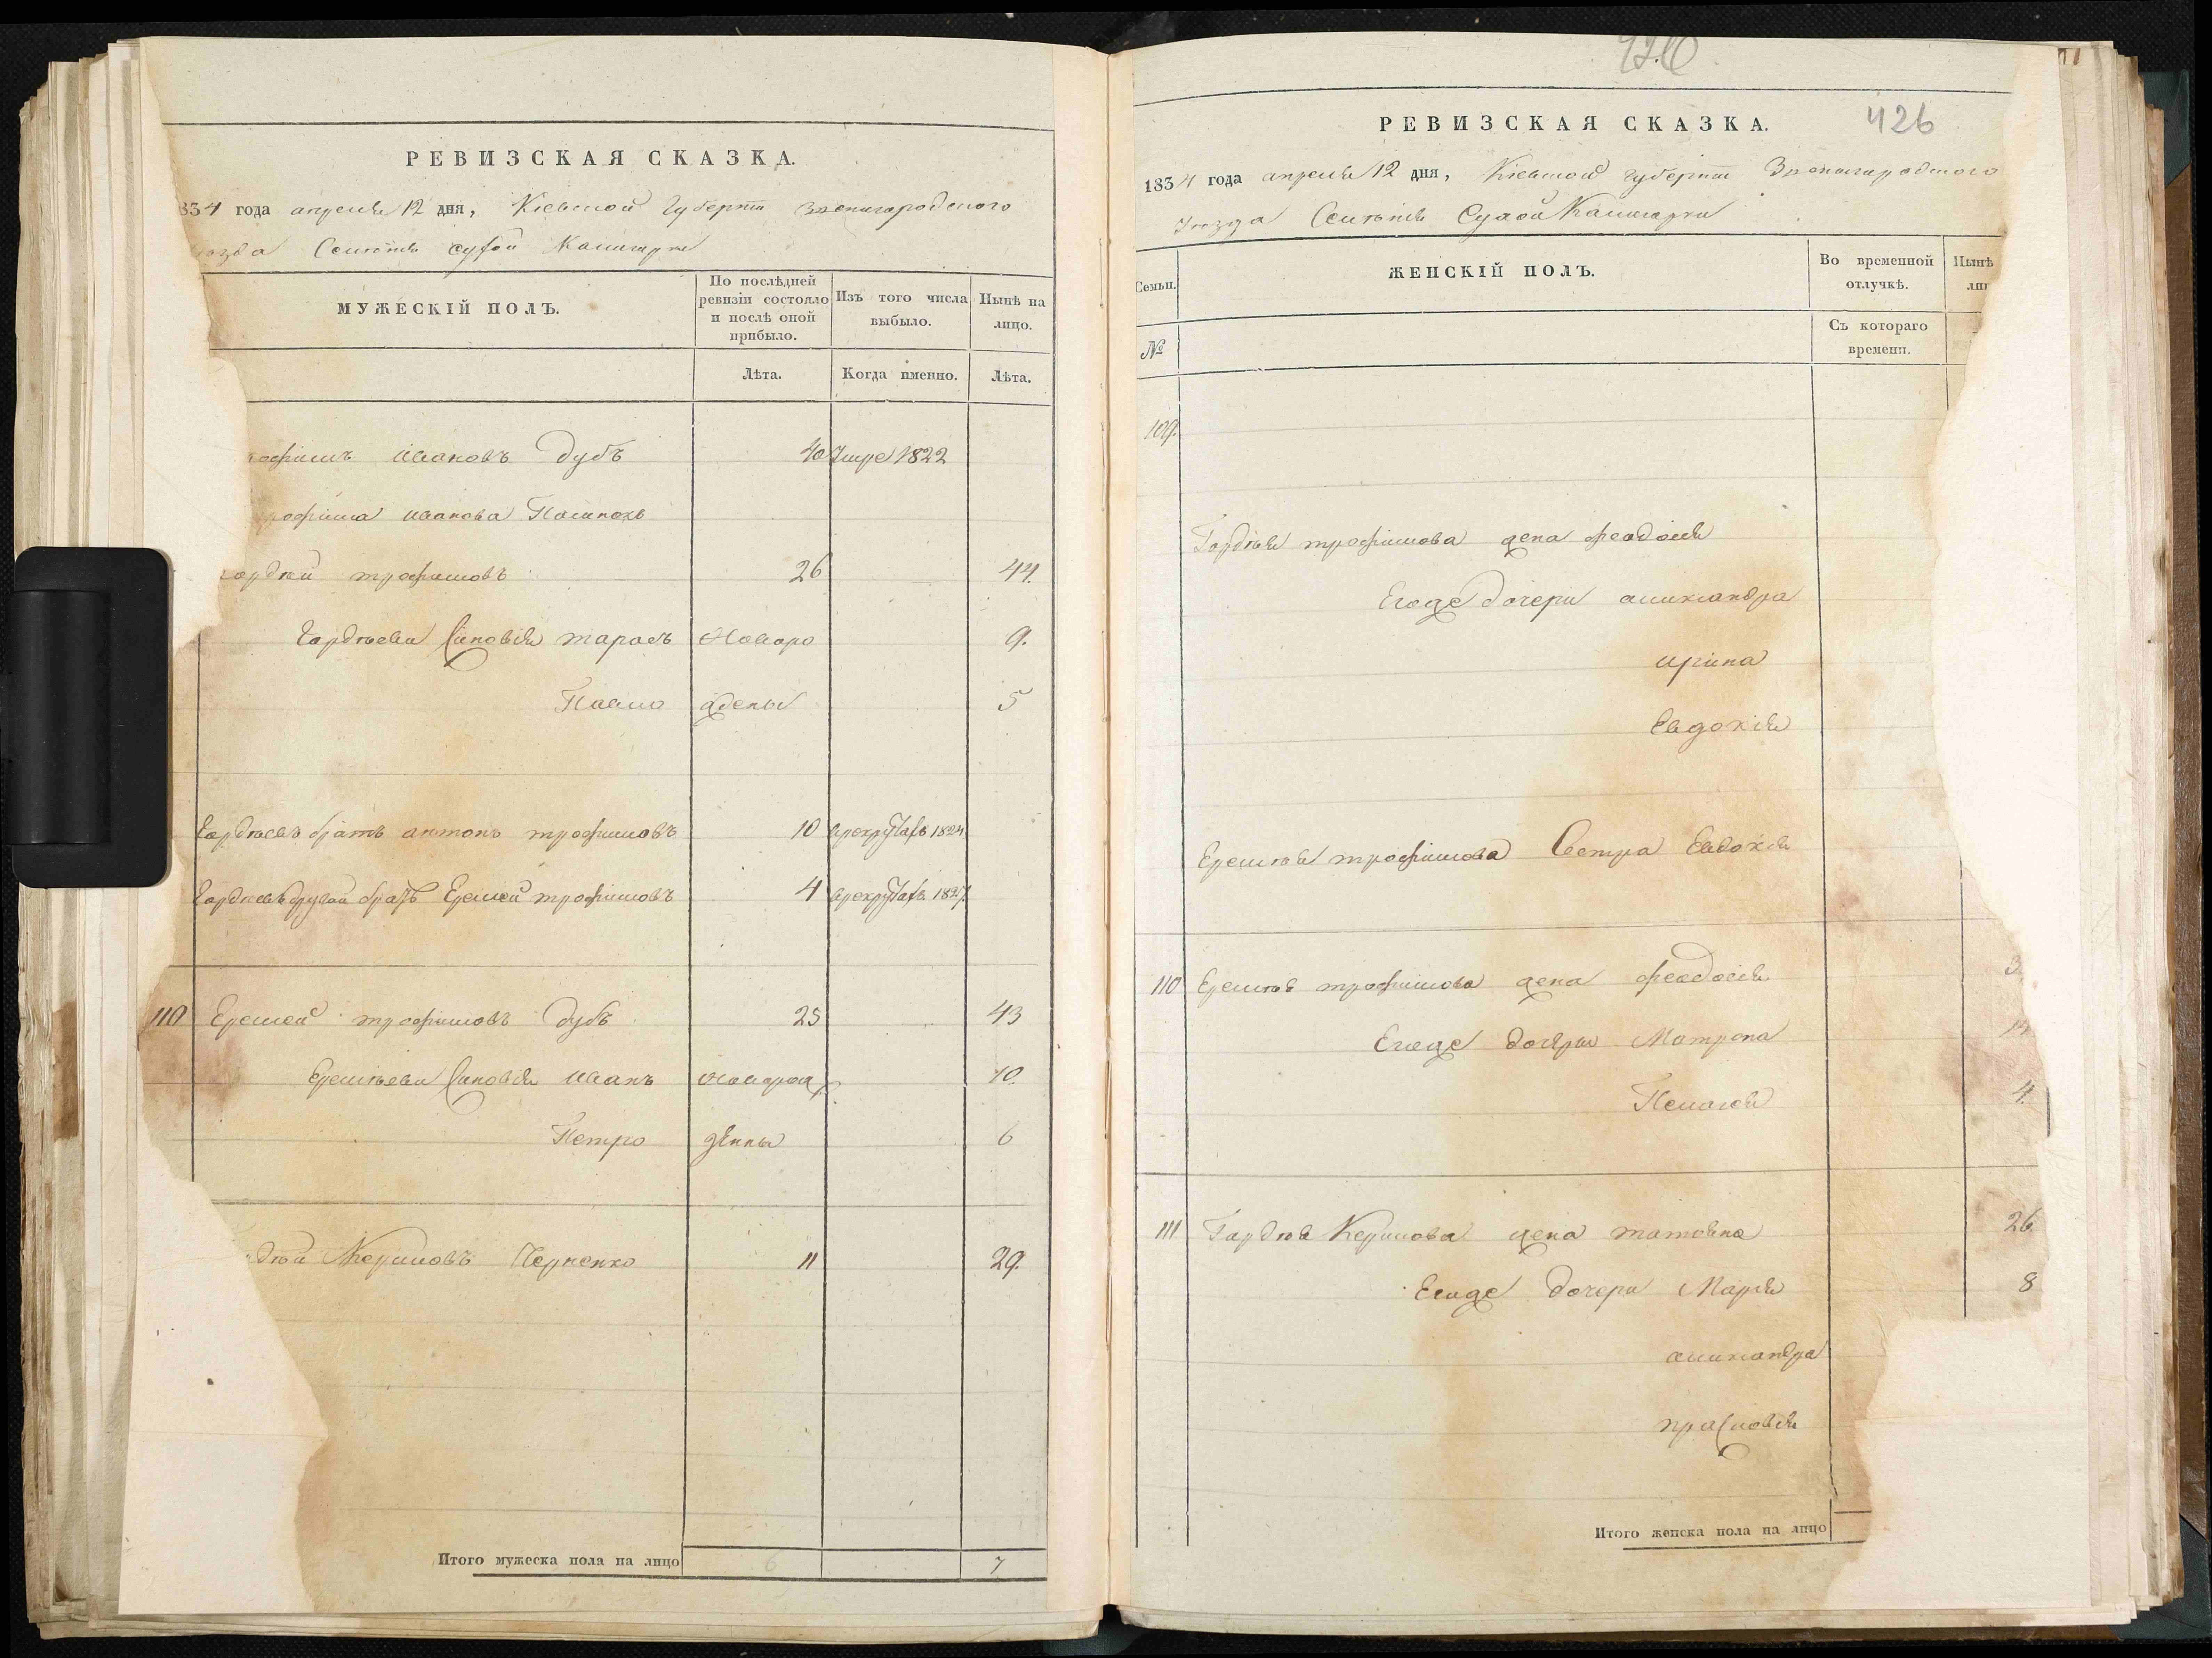 РЕВИЗСКАЯ СКАЗКА.
834 года апреля 12 дня, Кіевской губерніи Звенигородского
уезда Селенія Сухой Калигорки
МУЖЕСКІЙ ПОЛЪ.
По послѣдней ревизіи состояло и послѣ оной прибыло.
Изъ того числа выбыло.
Нынѣ на лицо.
Лѣта.
Когда именно.
Лѣта.
рофимъ Ивановъ Дубъ 40 Умре 1822
рофима Иванова
ордѣй трофимовъ 26 44.
Гордѣеви Синовія тарасъ Новоро 9.
Павло ждены 5
Гордѣевъ братъ антонъ трофимовъ 10 врекрутахъ 1824.
Гордѣевъ другой братъ Еремей трофимовъ 4 врекрутахъ 1827.
110 Еремей трофимовъ Дубъ 25 43
Еремѣеви Синовія Иванъ новорож 10.
Петро дѣнны 6
дѣй Черненко 11 29.
Итого мужеска пола на лицо 6 7
426
426
РЕВИЗСКАЯ СКАЗКА.
1834 года апреля 12 дня, Кіевской губерніи Звенигородского
Уезда Селенія Сухой Калигорки
Семьи.
ЖЕНСКІЙ ПОЛЪ.
Во временной отлучкѣ.
Нынѣ
ли
№
Съ котораго времени.
109.
Гордѣя трофимова жена феодосія
Егоже дочери александра
ирина
Евдокія
Еремѣя трофимова Сестра Евдокія
110 Еремѣя трофимова жена феодосія 3
Егоже дочери Матрона
Пелагея 4.
111 Гордѣя жена татьяна 26
Егоже дочери Марія 8
александра
прасковія
Итого женска пола на лицо